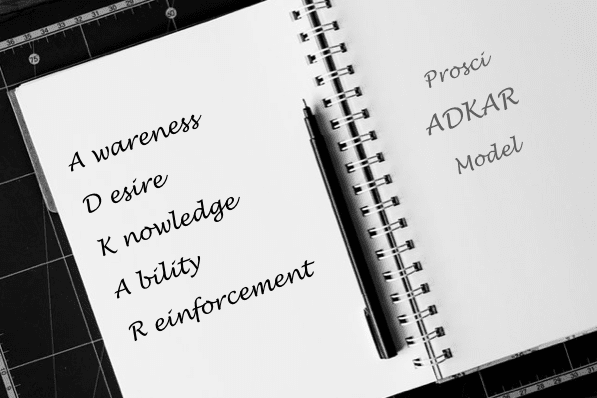 A wareness
D esire
K nowledge
A bility
R einforcement
Prosci
ADKAR
Model